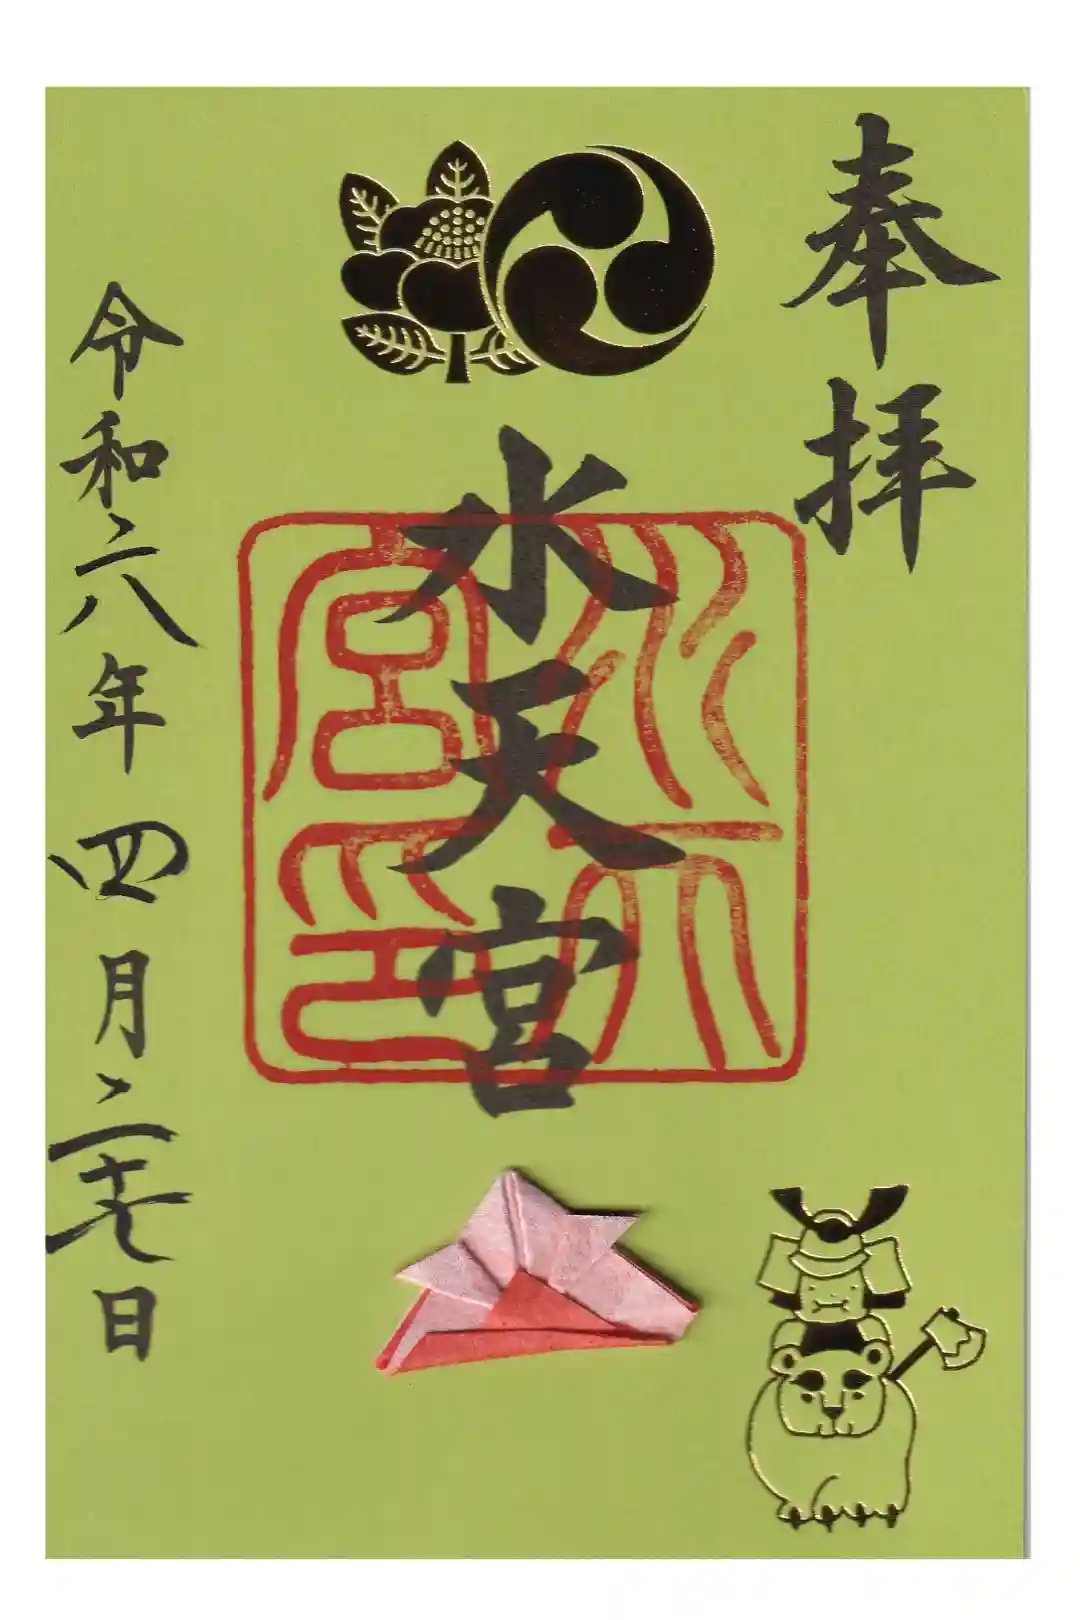 奉拝
水天宮
水天
宮印
令和六年四月二十七日